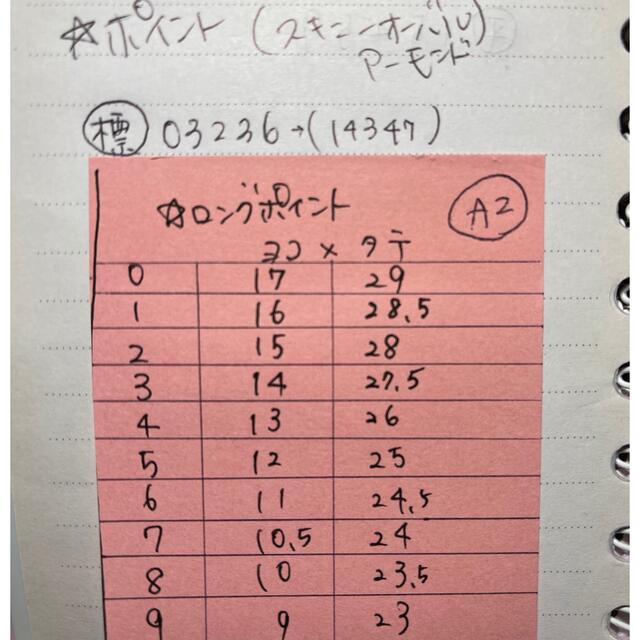 ☆ポイント(スキニーオーバル)
アーモンド
標 03236→(14347)
☆ロングポイント A2
ヨコ×タテ
0 17 29
1 16 28.5
2 15 28
3 14 27.5
4 13 26
5 12 25
6 11 24.5
7 10.5 24
8 10 23.5
9 9 23